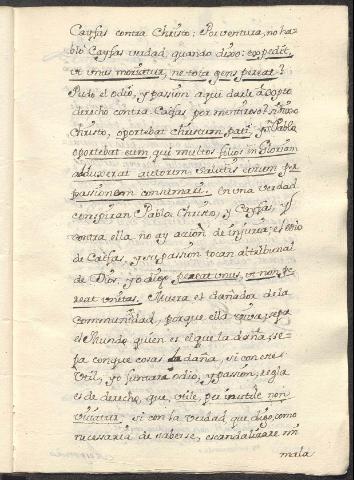 Cayfas contra Christo: Por ventura, no ha-
bló Cayfas verdad quando dixo: expedit,
ut unus moriatur, ne tota gens pereat?
Pudo el odio, y passion aqui darle à Copto
derecho contra Caifas por mentiroso?
Christo, oportebat christum pati, Pablo
oportebat eum, qui multos filios in gloriam
adduxerat autorem salutis eorum per
passionem consumari. En una verdad
conspiran Pablo Christo, y Cayfas, y
contra ella no ay accion de injuria; el odio
de Caifas, y su passion tocan al tribunal
de Dios, yo digo pereat unus, ut non pe-
reat unitas. Muera el dañador de la
communidad, porque ella viva, sepa
el Mundo quien es el que la daña, se-
pa con que cosas la daña, si con este
util, yo juntare odio, y passion, regla
es de derecho, que, utile, per inutile non
vitiatur; si con la verdad que digo, como
necessaria de saberse, escandalizare mi
mala